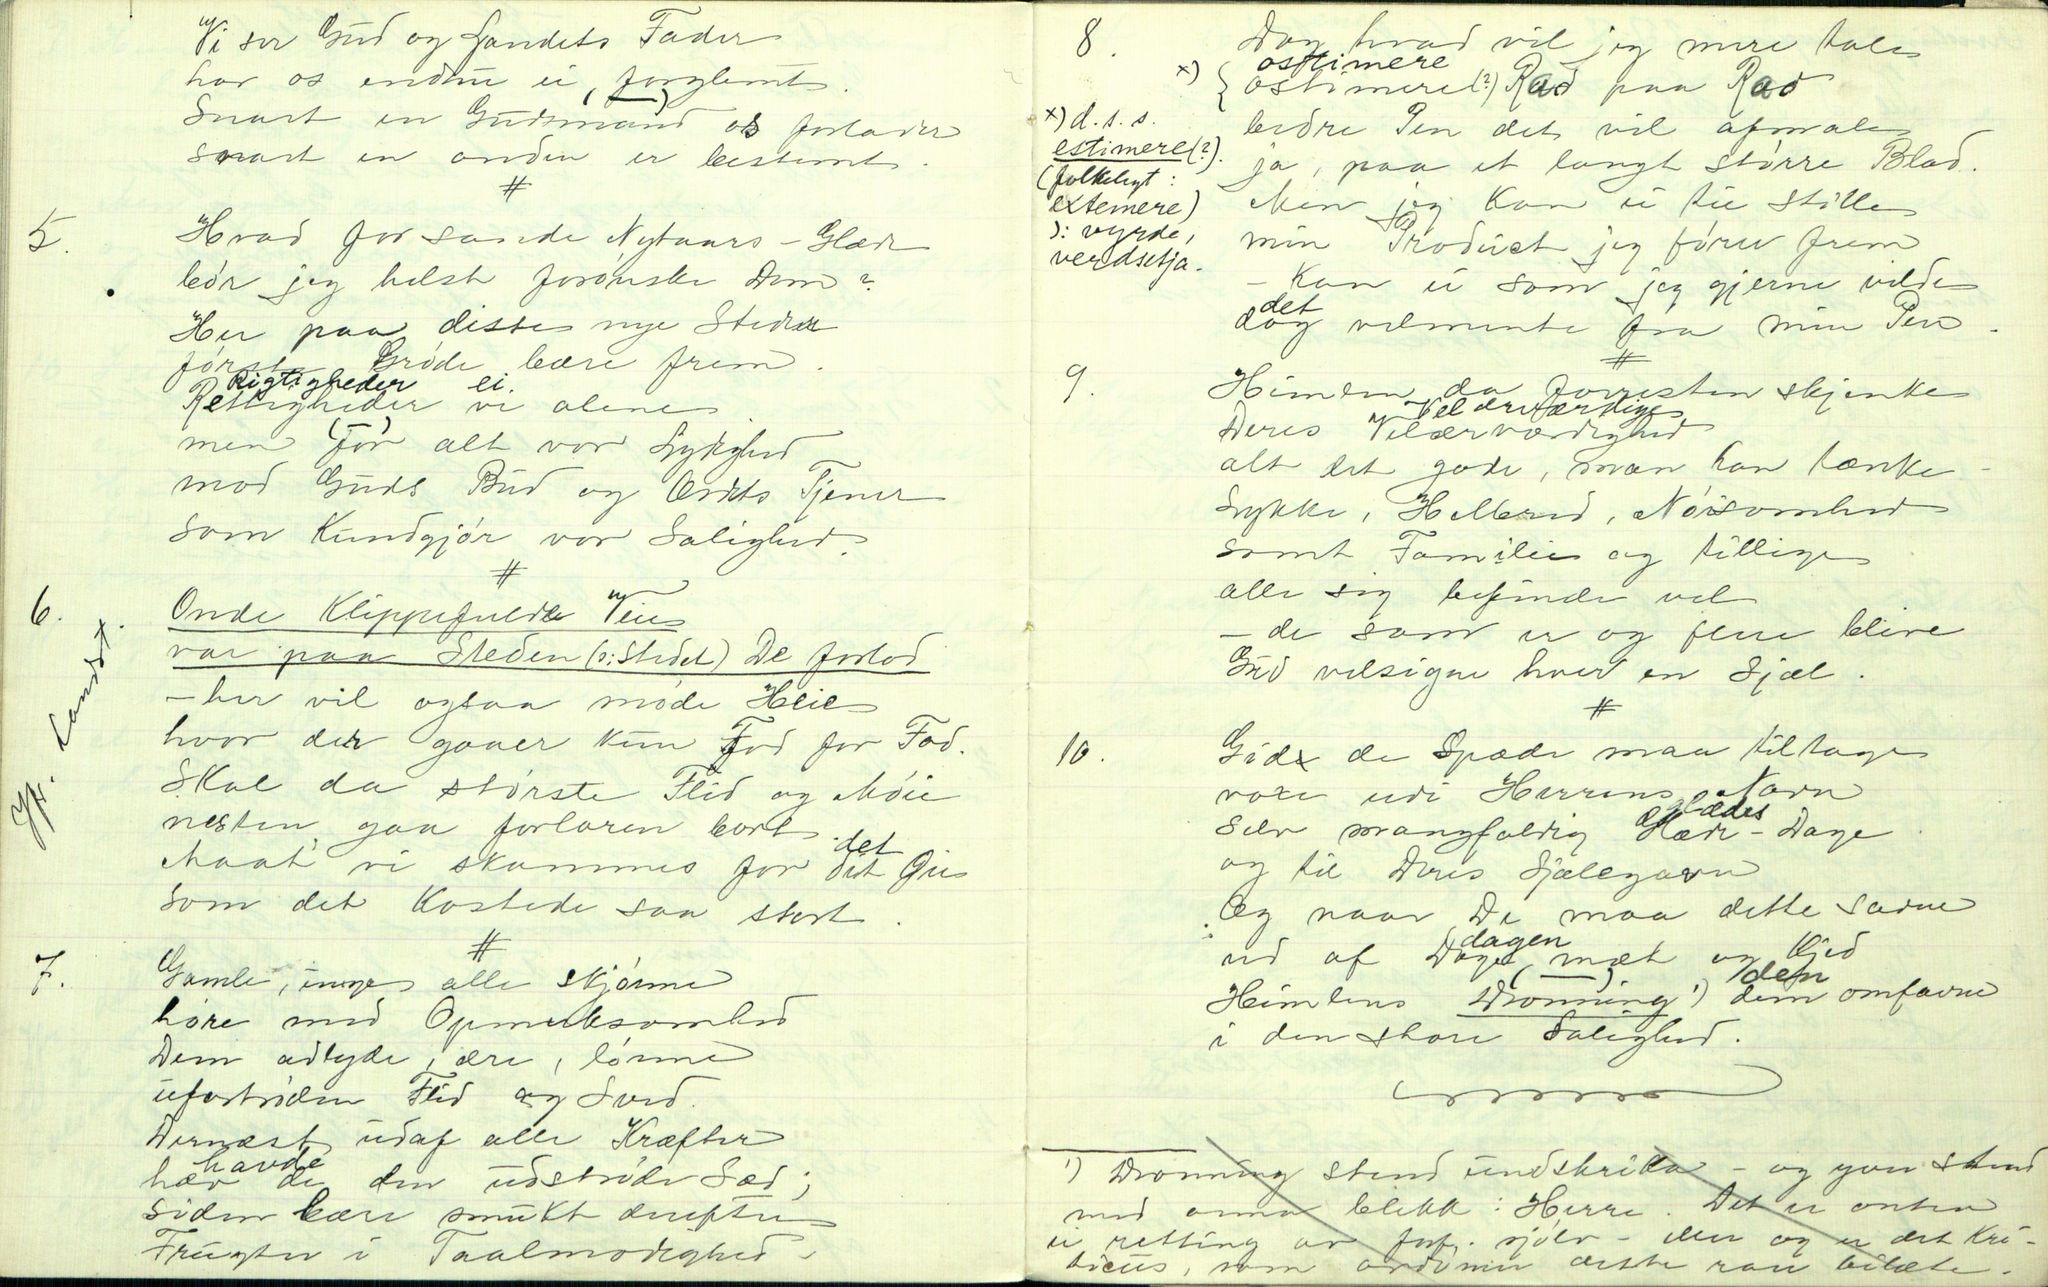 Vi ser Gud og Landets Fader
har os endnu ei forglemt.
Snart en Gudsmand os forlader
snart en anden er bestemt.
#
5. Hvad for sande Nytaars-Glæde
bör jeg helst forönske Dem?
Her paa disse nye Steder
först Gröde bære frem.
Rigtigheder ei
Rettigheder vi alene
men for alt vor Lydighed
mod Guds Bud og Ordets Tjener
som Kundgjör vor Salighed.
#
6. Onde Klippefulde Veie
var paa Steden (ɔ: Stedet) De forlod
- her vil ogsaa möde Heie
hvor der gaaer kun Fod for Fod.
Skal da störste Flid og Möie
nesten gaa forloren bort.
det
Maat' vi skammes for dit Öie
som det Kostede saa stort.
#
7. Gamle, unge alle skjönne
höre med Opmerksomhed
Dem adlyde, ære, lönne
ufortröden Flid og Sved.
Dernæst udaf alle Kræfter
havde
hæv de den udströde Sæd;
siden bære smukt derefter
Frugter i Taalmodighed.
8. Dog hvad vil jeg mere tale
ostimere
x) { ostimere (?) Rad paa Rad
bedre Pen det vil afmale
ja, paa et langt större Blad.
Men jeg Kan ei tie stille
min Product jeg förer frem
- Kan ei som jeg gjerne vilde
det
dog velmente fra min Pen.
x) d. s. s.
estimere (?).
(folkeligt:
extemere)
ɔ: vyrde,
verdsetja.
#
9. Himlen da forresten skjenke
Velærefærdige
Deres Velærværdighed
alt det gode, man kan tænke -
Lykke, Helbred, Nöisomhed
samt Familie og tillige
alle sig befinde vel
- de som er og flere blive
Gud velsigne hver en Sjæl.
#
10. Gid de Spæde maa tiltage
voxe udi Herrens Navn
glædes
selv mangfoldig Glæde-Dage
og til Deres Sjælegavn
Og naar De maa dette savne
dagen
ud af Dage mæt og Kjed
den
Himlens Dronning ¹) dem omfavne
i den store Salighed.
¹) Dronning stend undskrika - og yver stend
med anna blekk: Herre. Det er anten
ei retting av forf. sjölv - eller og er det Kri-